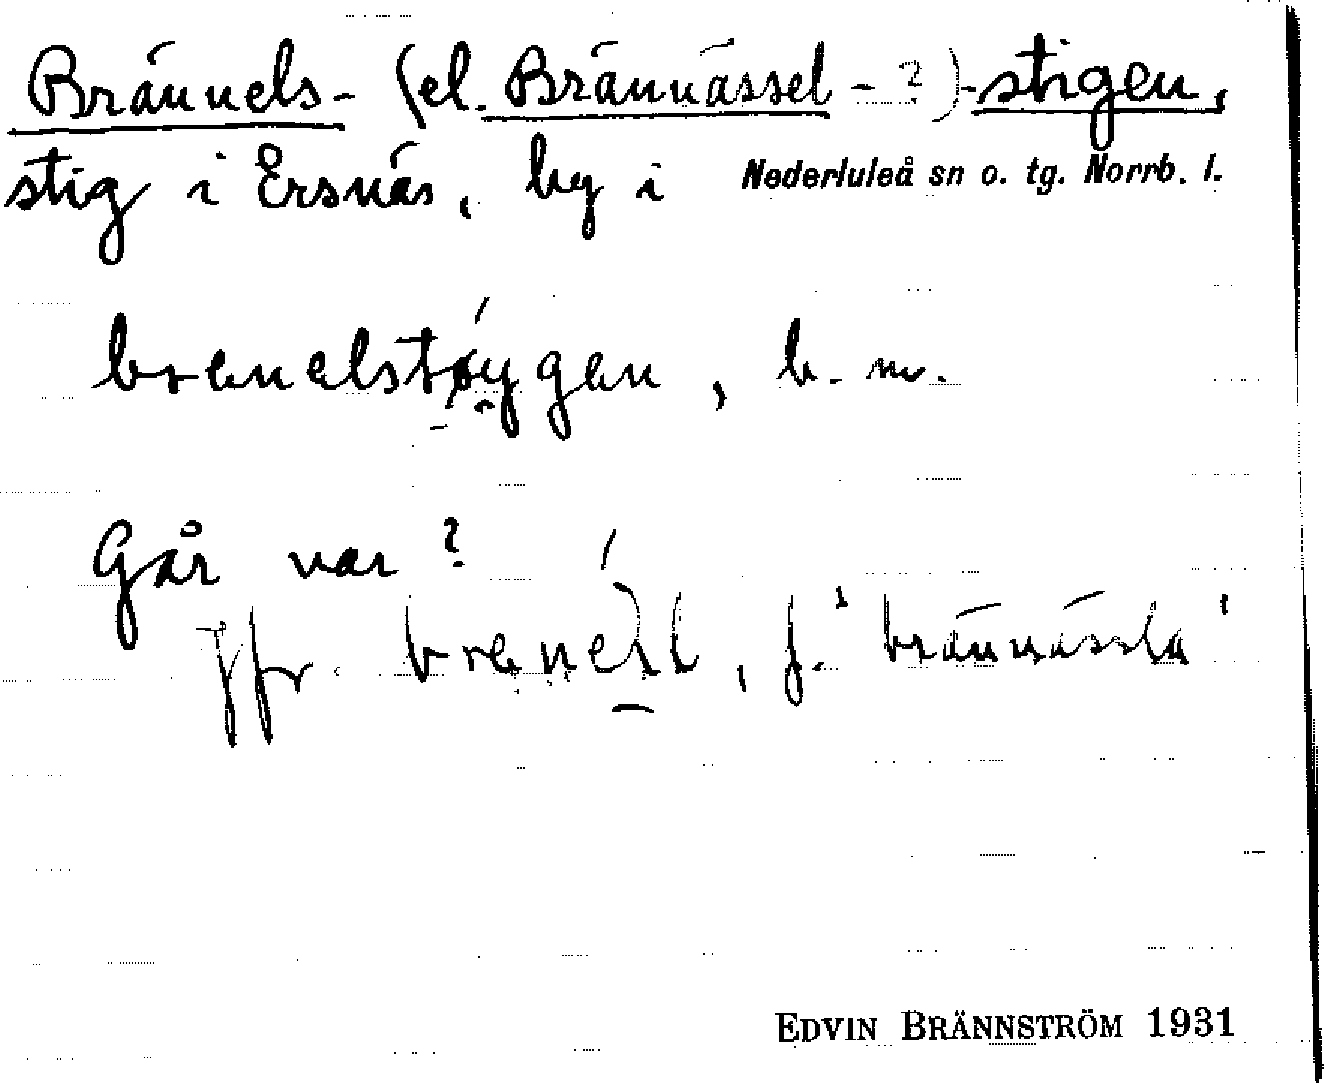 Brännels- (el. Brännässel-?)-stigen,
stig i Ersnäs, by i Nederluleå sn o. tg. Norrb. l.
, b. m.
Går var?
Jfr. , f. 'brännässla'
EDVIN BRÄNNSTRÖM 1931